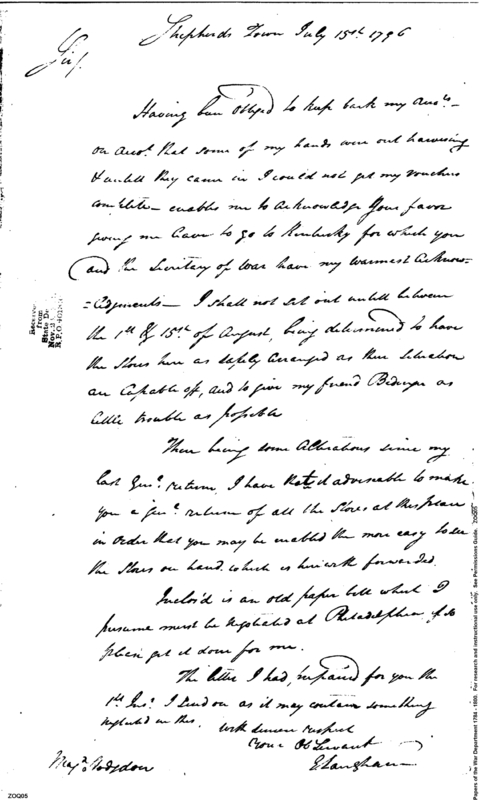 Shepherds Town July 15th 1796
Sir/.
Having been obliged to keep back my Accts
on Acct. that some of my hands were out harvesting
& untill they came in I could not get my vouchers
complete - enables me to acknowledge your favor
giving me leave to go to Kentucky for which you
and the Secretary of War have my warmest Acknow-
=ledgments - I shall not set out untill between
the 1st & 15th of August, being determined to have
the Stores here as safely arranged as their situation
are capable off, and to give my friend Bedinger as
little trouble as possible
There being some Alterations since my
last Genl. return, I have thot it adviseable to make
you a genl. return of all the Stores at this place
in order that you may be enabled the more easy to see
the Stores on hand which is herewith forwarded.
Inclos'd is an old paper bill which I
presume must be negotiated at Philadelphia, if so
please get it done for me.
The letter I had prepaired for you the
1st Inst. I send on as it may contain something
neglected in this.
with sincere respect
Your Ob Servant
E Langham
Majr. Hodgdon
Received
from
State De
Nov. 2
ZOQ05
Papers of the War Department 1784 - 1800. For research and instructional use only. See Permissions Guide. ZOQ05